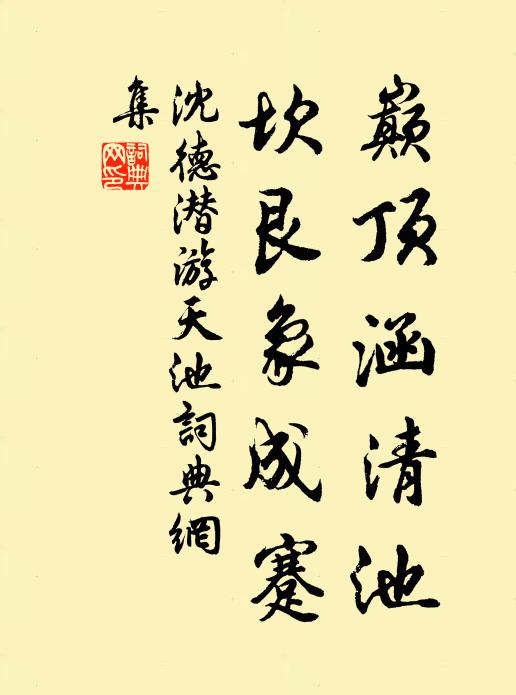 巅顶涵清池
坎艮象成蹇
沈德潜游天池詞典網
集
詞典網印